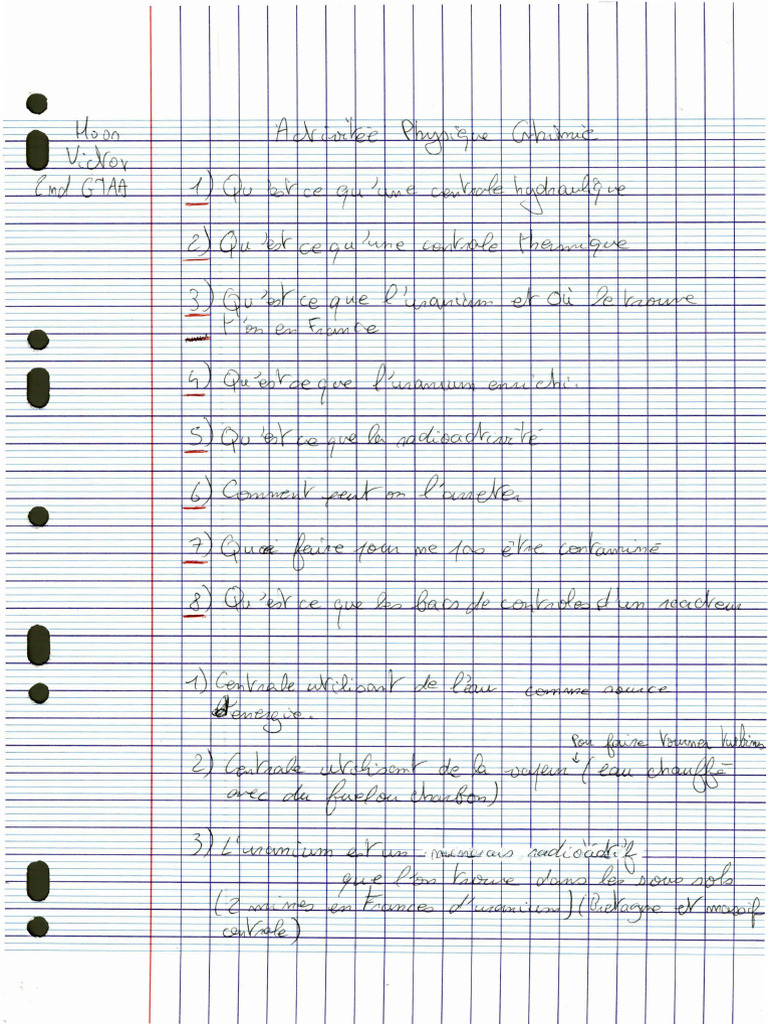 Moon
Victor
2nd G7AA
Activitée Physique Chimie
1) Qu'est ce qu'une centrale hydraulique
2) Qu'est ce qu'une centrale thermique
3) Qu'est ce que l'uranium et où le trouve
t'on en France
4) Qu'est ce que l'uranium enrichi.
5) Qu'est ce que la radioactivité
6) Comment peut on l'arreter
7) Quoi faire pour ne pas être contaminé
8) Qu'est ce que les bacs de controles d'un reacteur
1) Centrale utilisant de l'eau comme source
d'energie.
Pou faire tourner turbins
2) Centrale utilisant de la vapeur (eau chauffé
avec du fuel ou charbon)
3) L'uranium est un minerais radioactif
que l'on trouve dans les sous sols
(2 mines en Frances d'uranium) (Bretagne et massif
centrale)